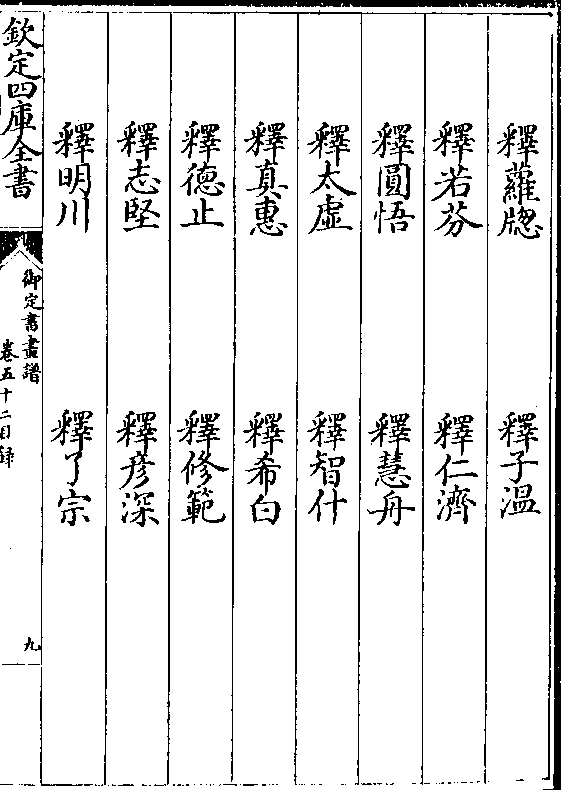 釋蘿牕 釋子温
釋若芬 釋仁濟
釋圓悟 釋慧舟
釋太虛 釋智什
釋真惠 釋希白
釋德止 釋修範
釋志堅 釋彦深
釋明川 釋了宗
欽定四庫全書
御定書畫譜
卷五十二目録
九